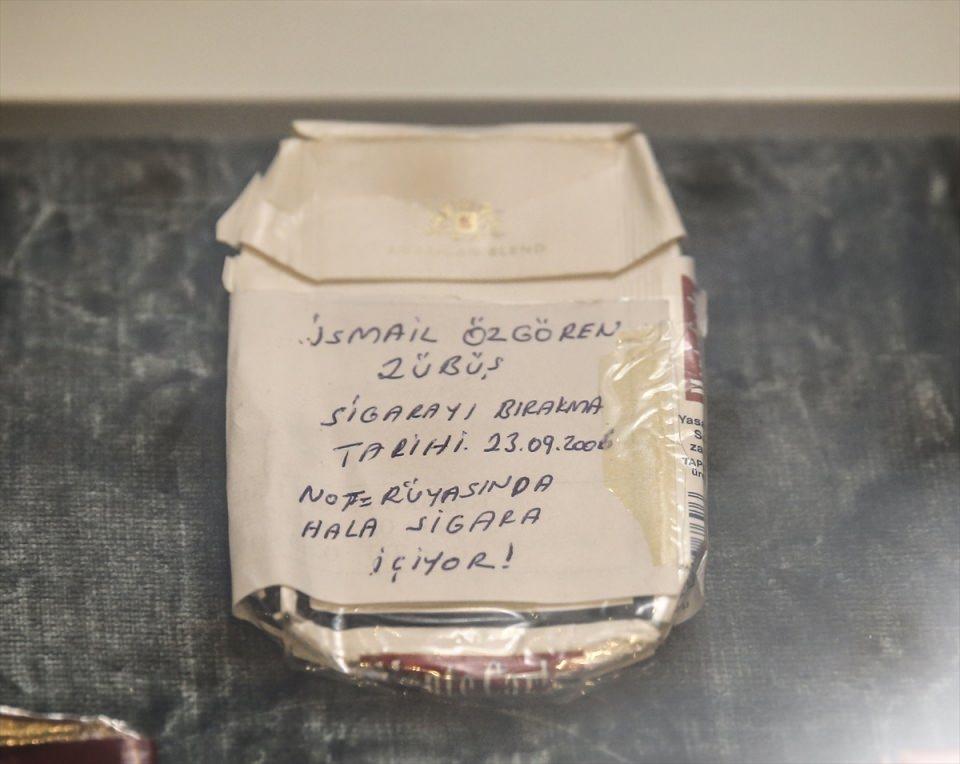 AMERICAN BLEND
İSMAİL ÖZGÖREN
ZÜBÜŞ
SİGARAYI BIRAKMA
TARİHİ. 23.09.2006
NOT= RÜYASINDA
HALA SİGARA
İÇİYOR!
Yasa
S
za
TAP
ür